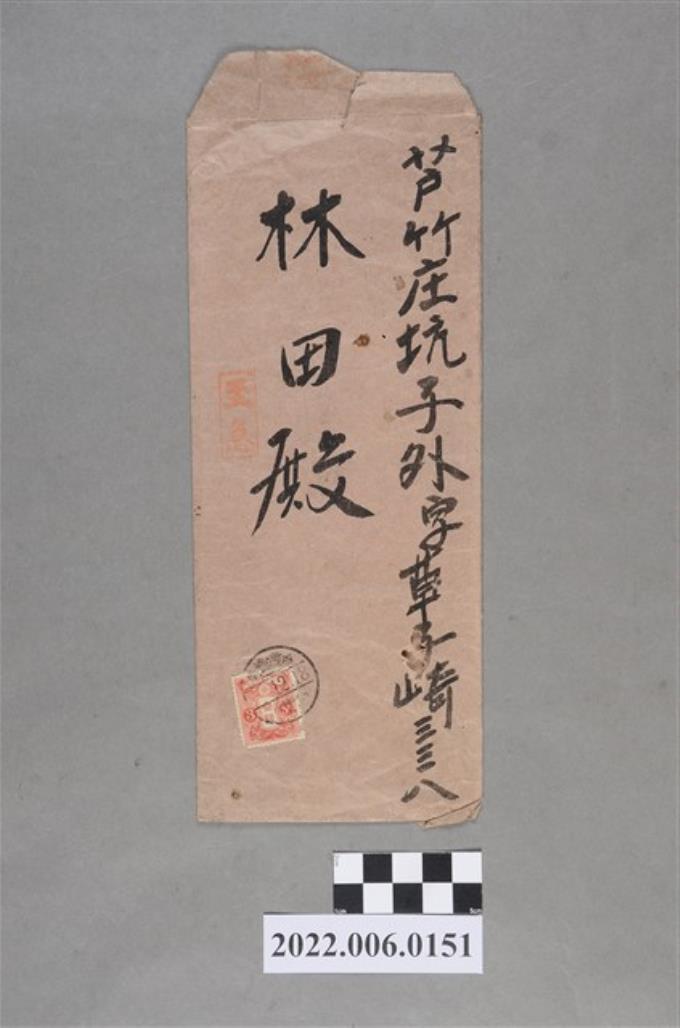 芦竹庄坑子外字草子崎三三八
林田殿
至急
2022.006.0151